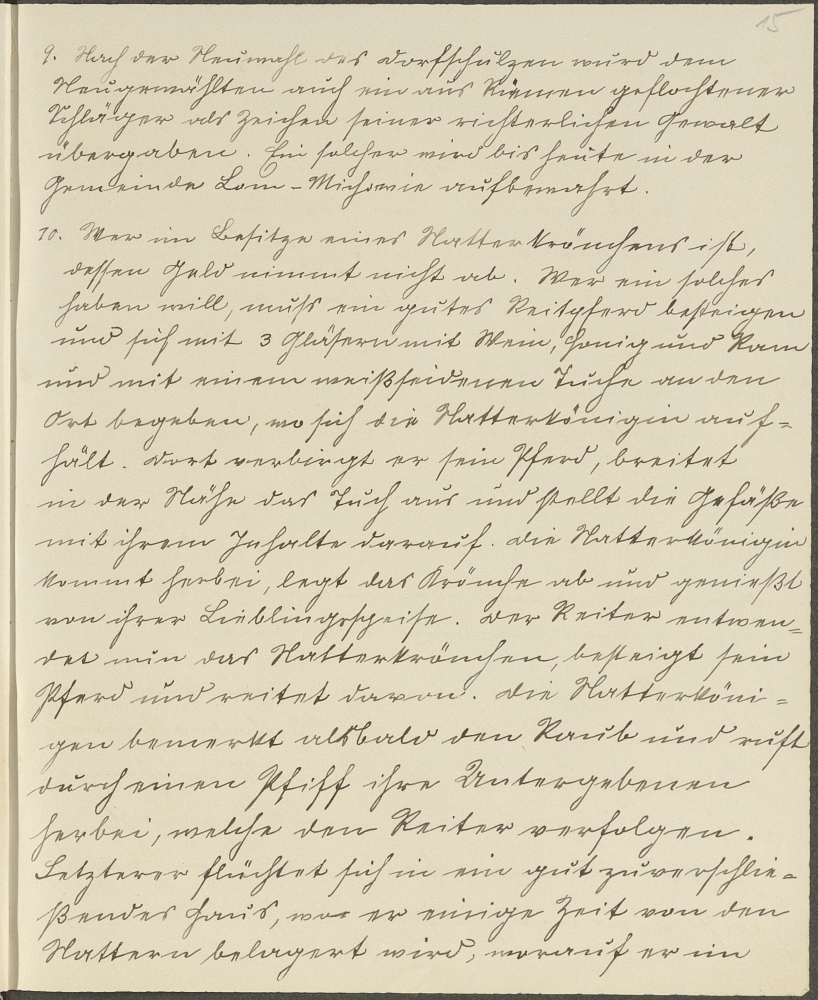 15
9. Nach der Neuwahl des Dorfschulzen wurd dem
Neugewählten auch ein aus Riemen geflochtener
Schläger als Zeichen seiner richterlichen Gewalt
übergaben. Ein solcher wird bis heute in der
Gemeinde Lom-Michowie aufbewahrt.
10. Wer im Besitze eines Natterkrönchens ist,
dessen Geld nimmt nicht ab. Wer ein solches
haben will, muss ein gutes Reitpferd besteigen
und sich mit 3 Gläsern mit Wein, Honig und Ram
und mit einem weißseidenen Tuche an den
Ort begeben, wo sich die Natterkönigin auf=
hält. Dort verbirgt er sein Pferd, breitet
in der Nähe das Tuch aus und stellt die Gefäße
mit ihrem Inhalte darauf. Die Natterkönigin
kommt herbei, legt das Krönche ab und genießt
von ihrer Lieblingsspeise. Der Reiter entwen=
det nun das Natterkrönchen, besteigt sein
Pferd und reitet davon. Die Natterköni=
gen bemerkt alsbald den Raub und ruft
durch einen Pfiff ihre Untergebenen
herbei, welche den Reiter verfolgen.
Letzterer flüchtet sich in ein gut zuverschlie=
ßendes Haus, wo er einige Zeit von den
Nattern belagert wird, worauf er im